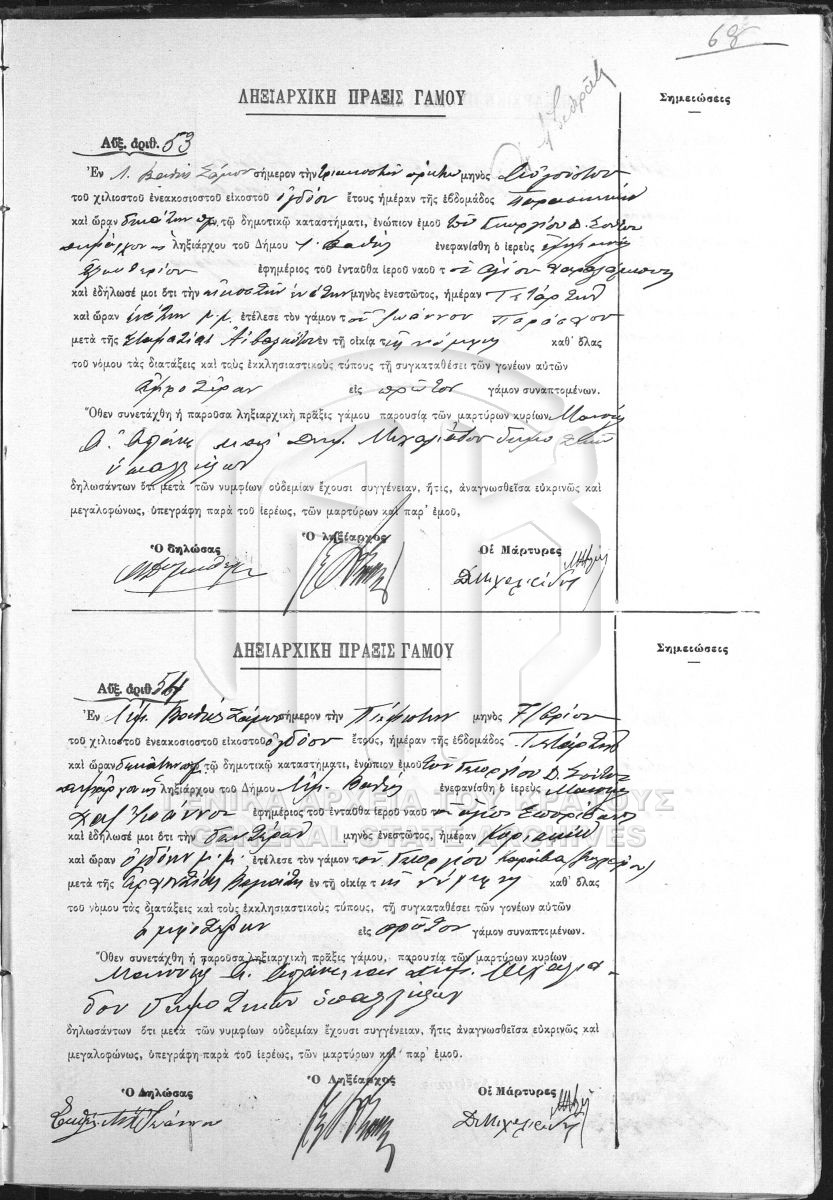 68
ΛΗΞΙΑΡΧΙΚΗ ΠΡΑΞΙΣ ΓΑΜΟΥ
Σημειώσεις
Αὔξ. ἀριθ. 53
Ἐν Λ. Βαθέος Σάμου σήμερον τὴν τριακοστὴν πρώτην μηνὸς Αὐγούστου
τοῦ χιλιοστοῦ ἐνεακοσιοστοῦ εἰκοστοῦ ὀγδόου ἔτους ἡμέραν τῆς ἑβδομάδος Παρασκευὴν
καὶ ὥραν δεκάτην π.μ. τῷ δημοτικῷ καταστήματι, ἐνώπιον ἐμοῦ τοῦ Γεωργίου Δ.
δημάρχου ληξιάρχου τοῦ Δήμου Λ. Βαθέος ἐνεφανίσθη ὁ ἱερεὺς
Ἐλευθερίου ἐφημέριος τοῦ ἐνταῦθα ἱεροῦ ναοῦ τοῦ Ἁγίου Χαραλάμπους
καὶ ἐδήλωσέ μοι ὅτι τὴν εἰκοστὴν ἐνάτην μηνὸς ἐνεστῶτος, ἡμέραν Τετάρτην
καὶ ὥραν ἐνάτην μ.μ. ἐτέλεσε τὸν γάμον τοῦ Ἰωάννου Παράσχου
μετὰ τῆς Σταματίας ἐν τῇ οἰκίᾳ τῆς νύμφης καθ' ὅλας
τοῦ νόμου τὰς διατάξεις καὶ τοὺς ἐκκλησιαστικοὺς τύπους τῇ συγκαταθέσει τῶν γονέων αὐτῶν
ἀμφοτέρων εἰς πρῶτον γάμον συναπτομένων.
Ὅθεν συνετάχθη ἡ παροῦσα ληξιαρχικὴ πρᾶξις γάμου παρουσίᾳ τῶν μαρτύρων κυρίων Μανουὴλ
Α. καὶ Δημ. Μιχαλιάδου δημοτικῶν
ὑπαλλήλων
δηλωσάντων ὅτι μετὰ τῶν νυμφίων οὐδεμίαν ἔχουσι συγγένειαν, ἥτις, ἀναγνωσθεῖσα εὐκρινῶς καὶ
μεγαλοφώνως, ὑπεγράφη παρὰ τοῦ ἱερέως, τῶν μαρτύρων καὶ παρ' ἐμοῦ,
Ὁ δηλώσας
Ὁ ληξίαρχος
Οἱ Μάρτυρες
Δ. Μιχαλιάδης
ΛΗΞΙΑΡΧΙΚΗ ΠΡΑΞΙΣ ΓΑΜΟΥ
Σημειώσεις
Αὔξ. ἀριθ. 54
Ἐν Λιμ. Βαθέος Σάμου σήμερον τὴν Πέμπτην μηνὸς 7/βρίου
τοῦ χιλιοστοῦ ἐνεακοσιοστοῦ εἰκοστοῦ ὀγδόου ἔτους, ἡμέραν τῆς ἑβδομάδος Τετάρτην
καὶ ὥραν δεκάτην π.μ. τῷ δημοτικῷ καταστήματι, ἐνώπιον ἐμοῦ τοῦ Γεωργίου Δ.
δημάρχου ληξιάρχου τοῦ Δήμου Λιμ. Βαθέος ἐνεφανίσθη ὁ ἱερεὺς
Χατζηϊωάννου ἐφημέριος τοῦ ἐνταῦθα ἱεροῦ ναοῦ Ἁγίου Σπυρίδωνος
καὶ ἐδήλωσέ μοι ὅτι τὴν δευτέραν μηνὸς ἐνεστῶτος, ἡμέραν Κυριακὴν
καὶ ὥραν ὀγδόην μ.μ. ἐτέλεσε τὸν γάμον τοῦ Γεωργίου
μετὰ τῆς ἐν τῇ οἰκίᾳ τῆς νύμφης καθ' ὅλας
τοῦ νόμου τὰς διατάξεις καὶ τοὺς ἐκκλησιαστικοὺς τύπους, τῇ συγκαταθέσει τῶν γονέων αὐτῶν
ἀμφοτέρων εἰς πρῶτον γάμον συναπτομένων.
Ὅθεν συνετάχθη ἡ παροῦσα ληξιαρχικὴ πρᾶξις γάμου, παρουσίᾳ τῶν μαρτύρων κυρίων
Μανουὴλ Α. καὶ Δημ. Μιχαλιά-
δου δημοτικῶν ὑπαλλήλων
δηλωσάντων ὅτι μετὰ τῶν νυμφίων οὐδεμίαν ἔχουσι συγγένειαν, ἥτις ἀναγνωσθεῖσα εὐκρινῶς καὶ
μεγαλοφώνως, ὑπεγράφη παρὰ τοῦ ἱερέως, τῶν μαρτύρων καὶ παρ' ἐμοῦ.
Ὁ Δηλώσας
Ὁ Ληξίαρχος
Οἱ Μάρτυρες
Δ. Μιχαλιάδης
ΓΕΝΙΚΑ ΑΡΧΕΙΑ ΤΟΥ ΚΡΑΤΟΥΣ
GENERAL STATE ARCHIVES